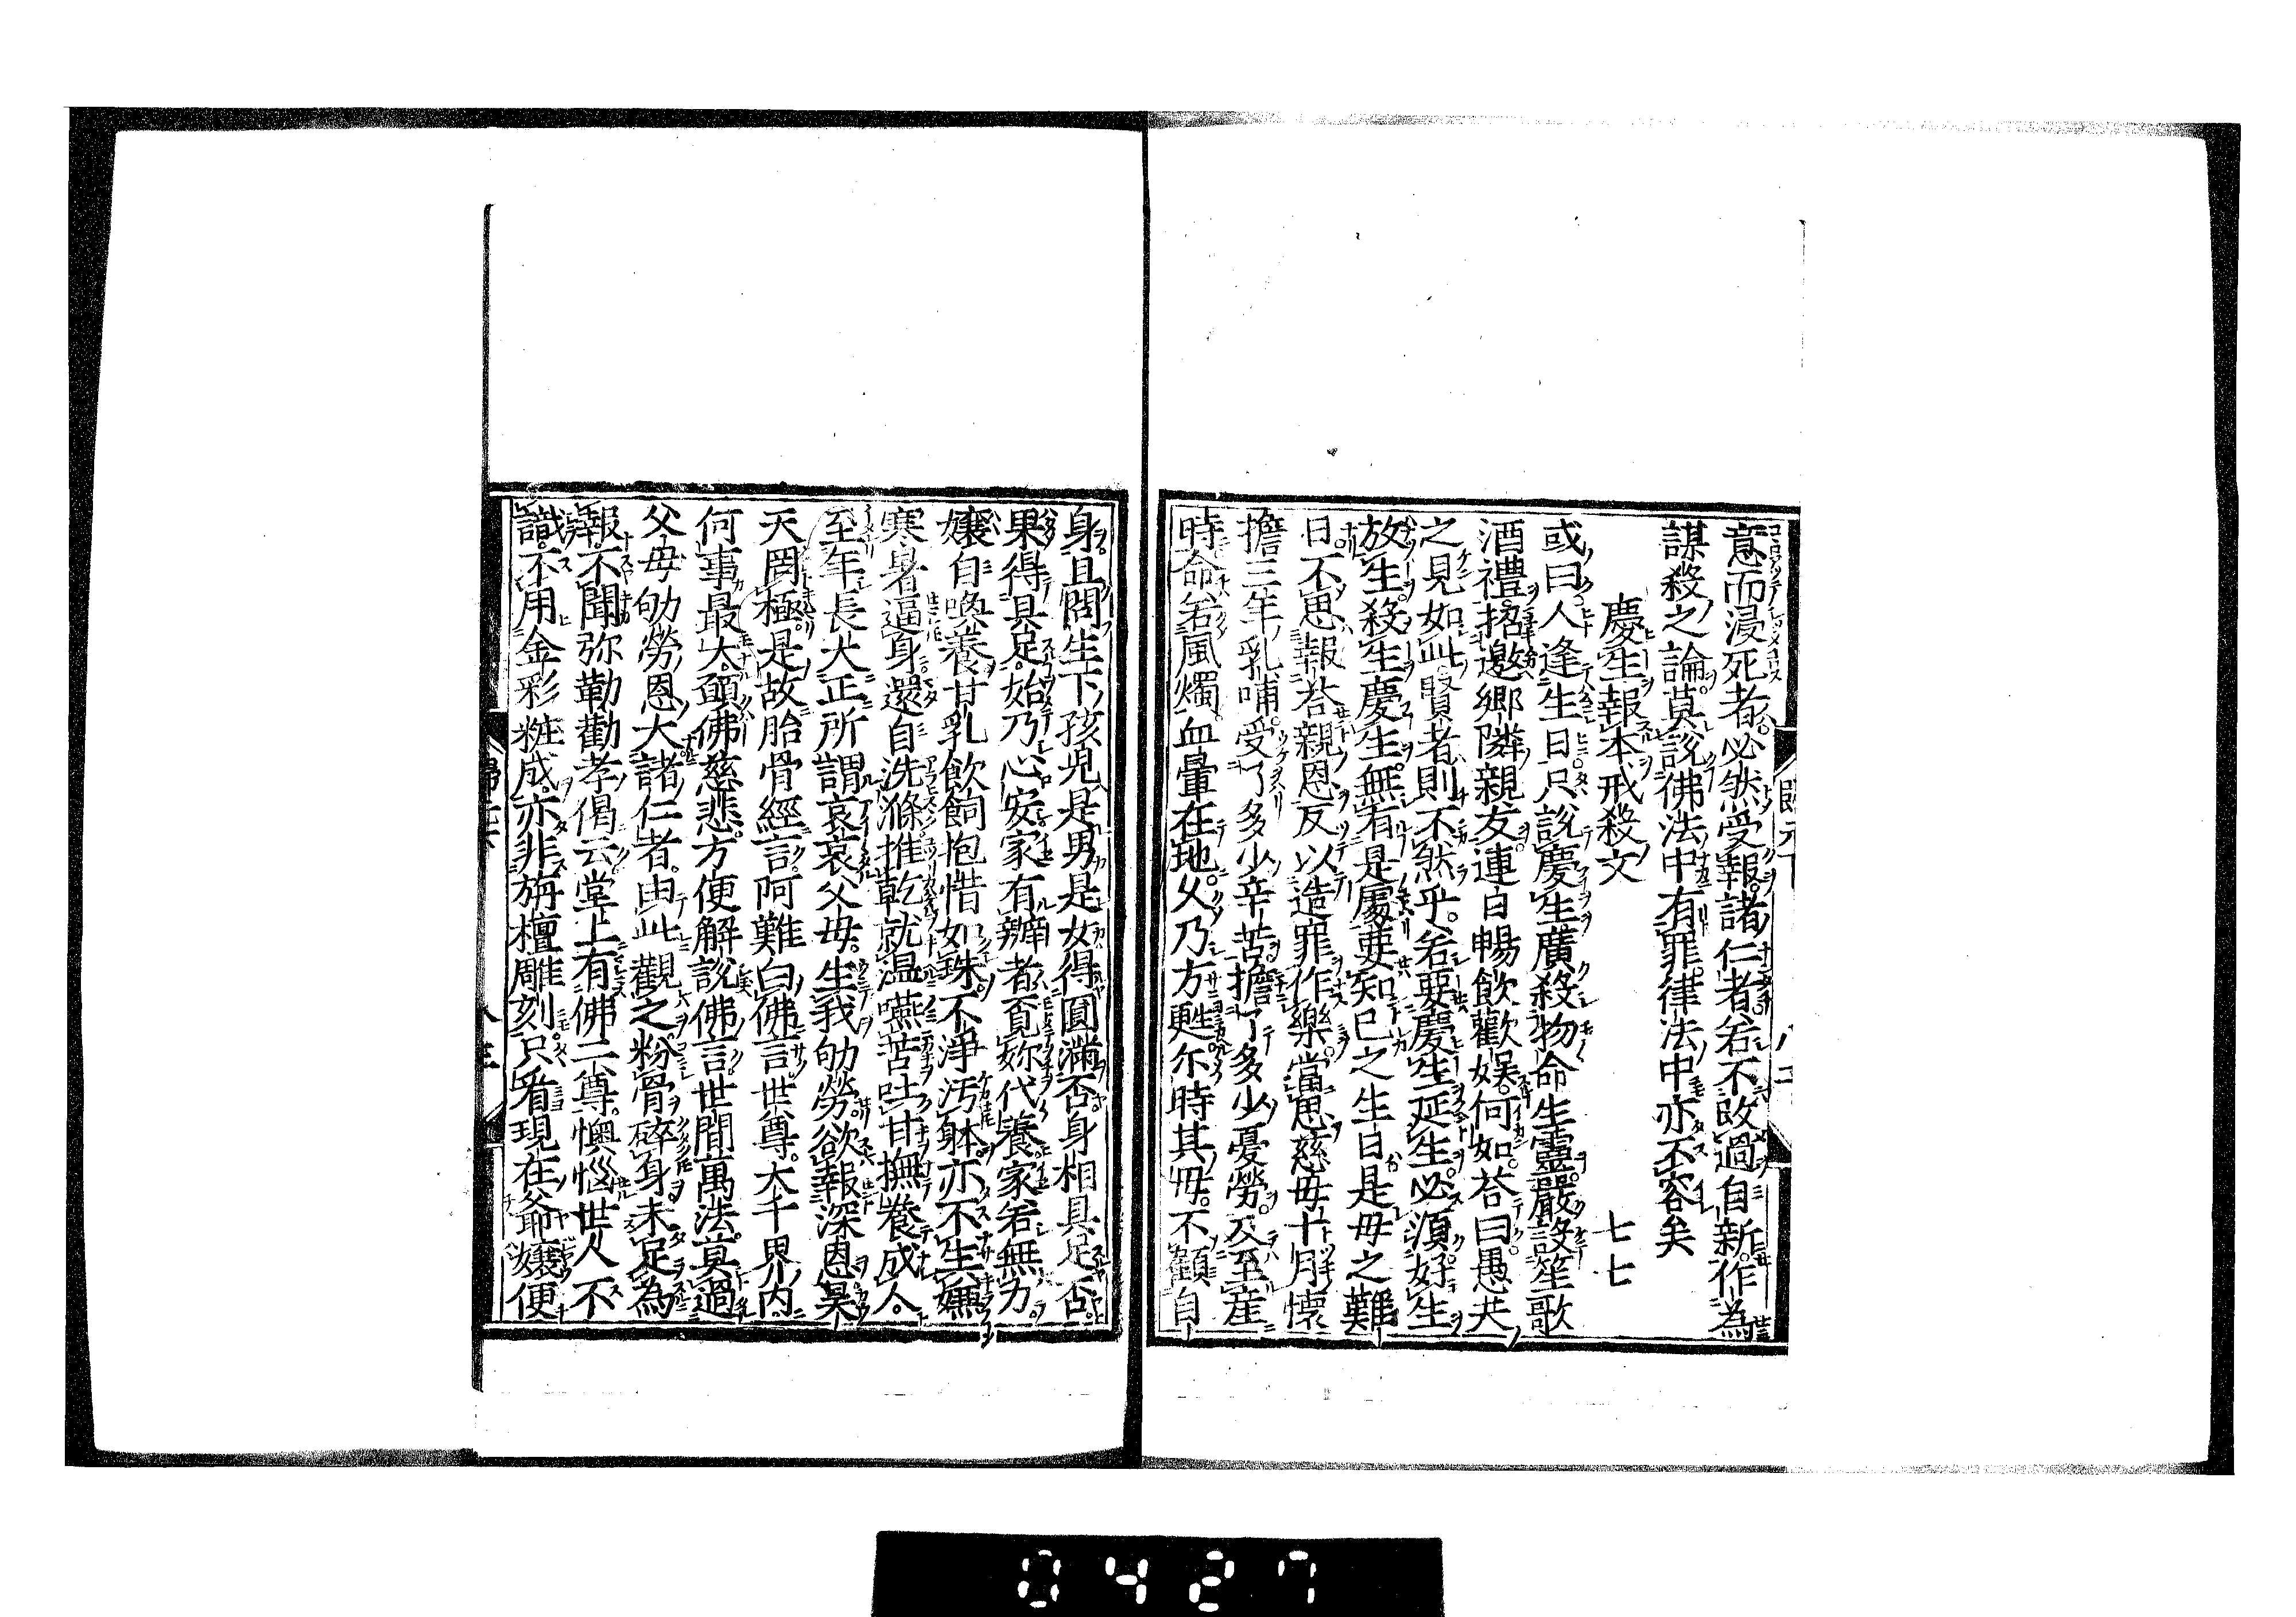 意而浸死者必然受報諸仁者若不改過自新作為
謀殺之論莫說佛法中有罪律法中亦不容矣
慶生報本戒殺文 七七
或曰人逢生日只說慶生廣殺物命生靈嚴設笙歌
酒禮招邀鄉隣親友連日暢飲歡娛何如荅曰愚夫
之見如此賢者則不然乎若要慶生延生必須好生
放生殺生慶生無有是處要知己之生日是毋之難
日不思報荅親恩反以造罪作樂當思慈毋十月懷
擔三年乳哺受了多少辛苦擔了多少憂勞及至產
時命若風燭血暈在地父乃方甦尒時其毋不顧自
身且問生下孩兒是男是女得圓滿否身相具足否
果得具足始乃心安家有辦者覔妳代養家若無力
孃自喚養甘乳飲飼抱惜如珠不淨汚躰亦不生嫌
寒暑逼身還自洗滌推乾就温嚥苦吐甘撫養成人
至年長大正所謂哀哀父毋生我劬勞欲報深恩昊
天罔極是故胎骨經言阿難白佛言世尊大千界內
何事最大願佛慈悲方便解說佛言世間萬法莫過
父毋劬勞恩大諸仁者由此觀之粉骨碎身未足為
報不聞弥勒勸孝偈云堂上有佛二尊懊惱世人不
識不用金彩粧成亦非旃檀雕刻只看現在爺孃便
0427